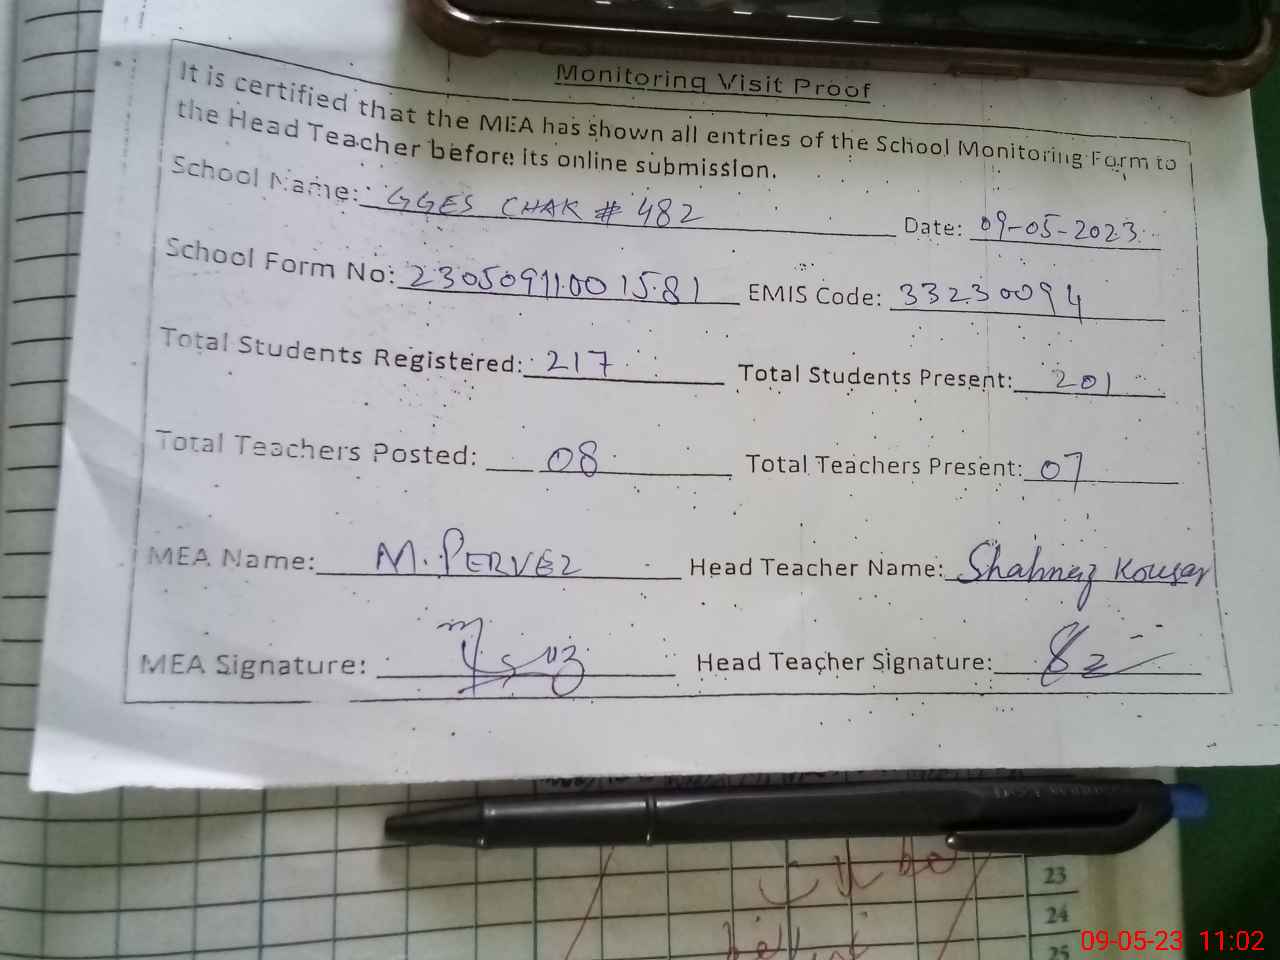 Monitoring Visit Proof
It is certified that the MEA has shown all entries of the School Monitoring Form to
the Head Teacher before its online submission.
School Name: GGES CHAK # 482 Date: 09-05-2023
School Form No: 23050911001581 EMIS Code: 33230094
Total Students Registered: 217 Total Students Present: 201
Total Teachers Posted: 08 Total Teachers Present: 07
MEA Name: M. PERVEZ Head Teacher Name: Shahnaz Kousar
MEA Signature: Head Teacher Signature:
23
24
25
09-05-23 11:02